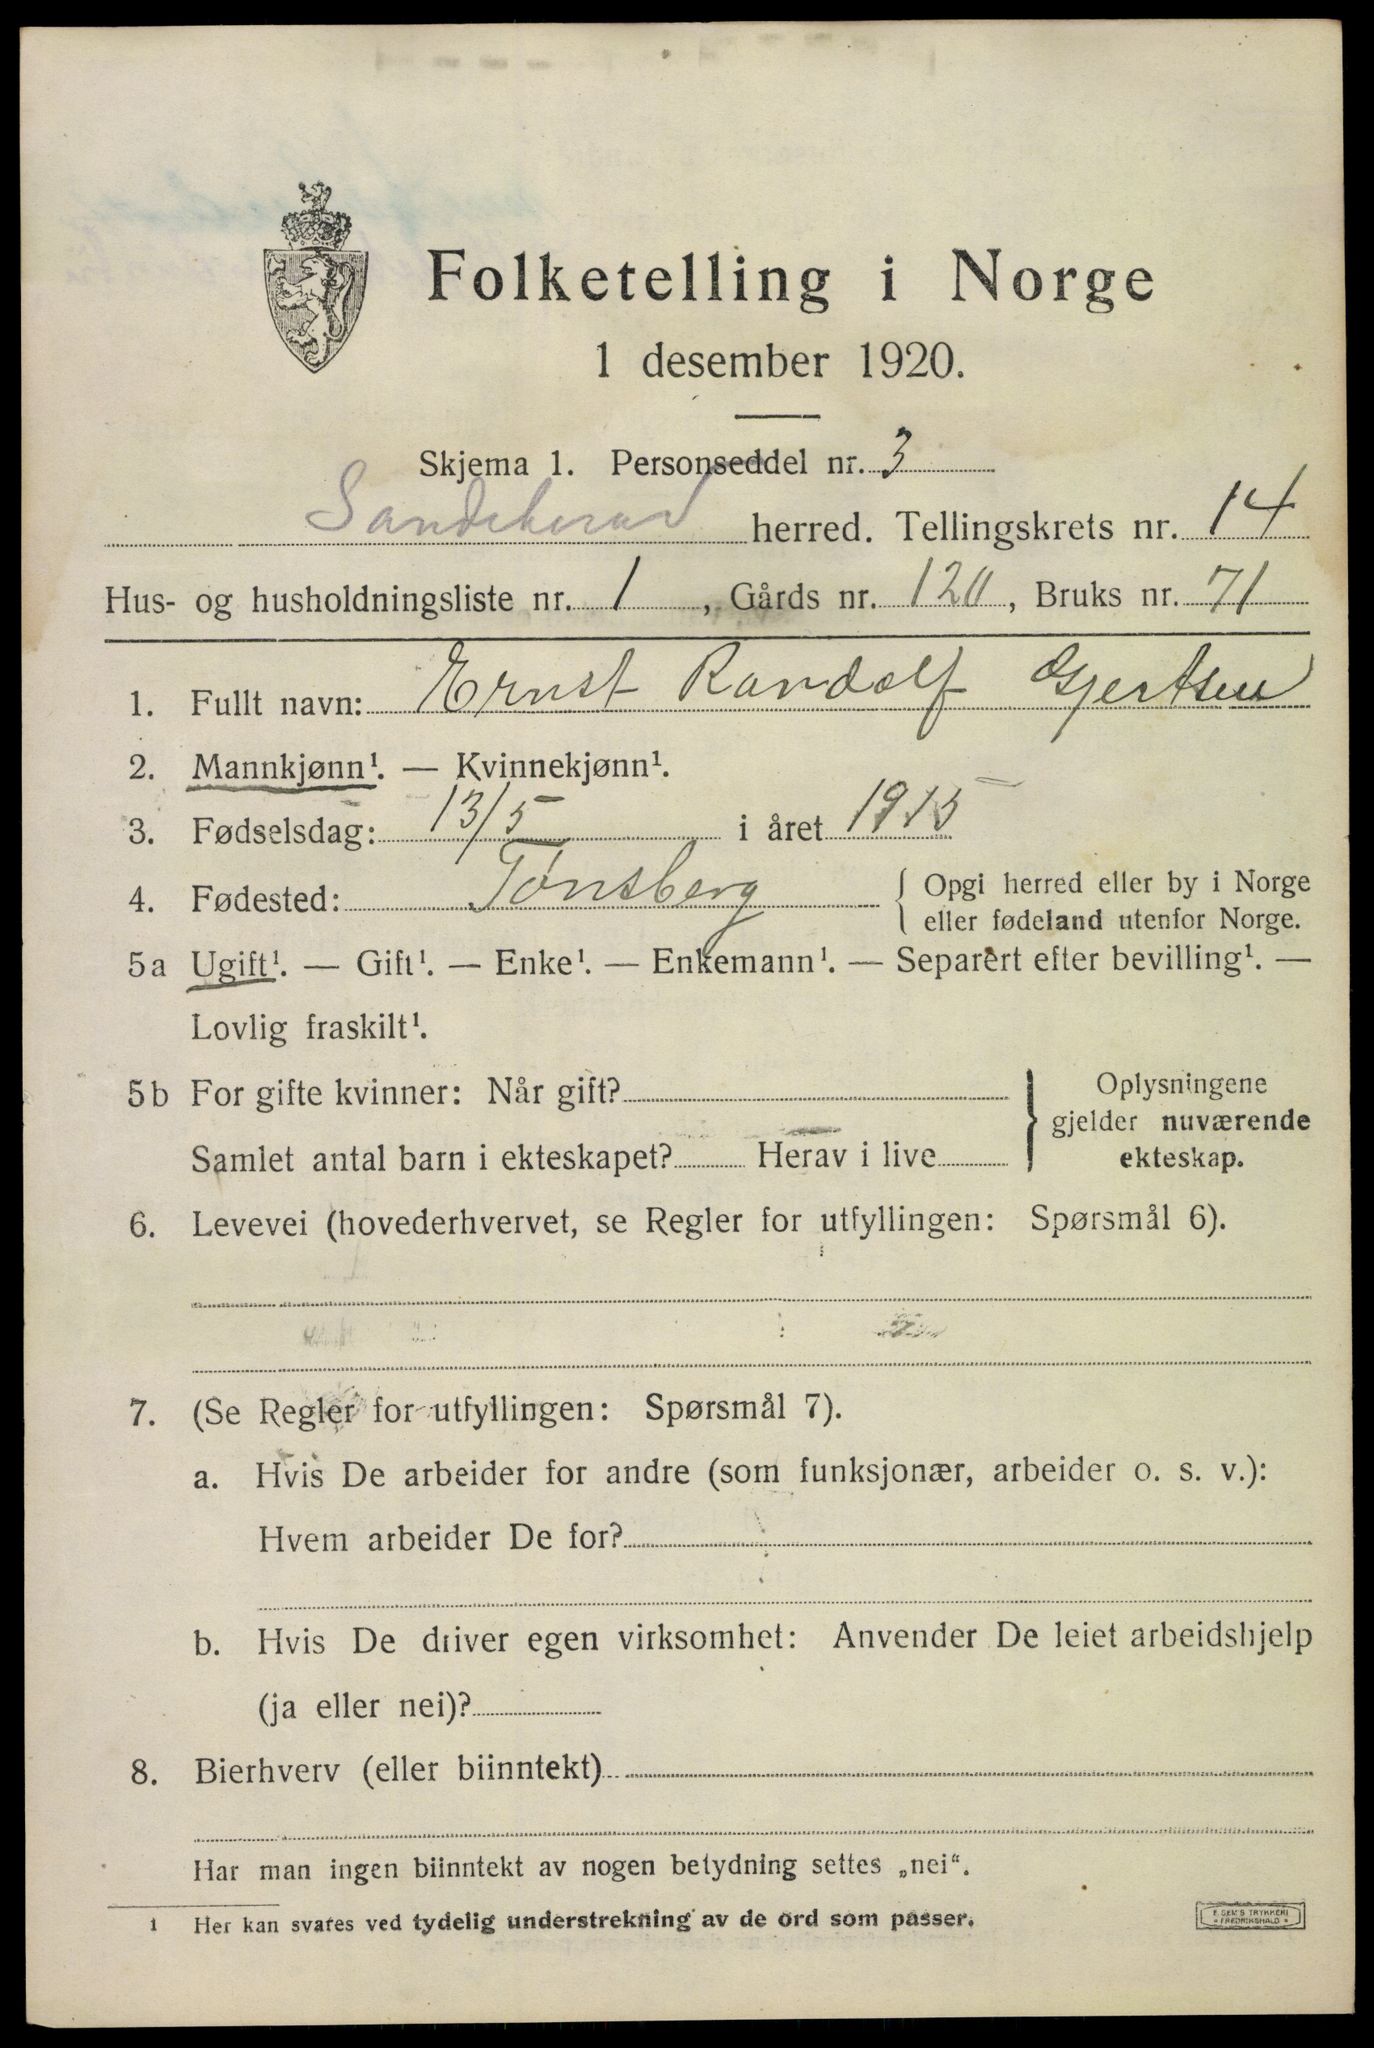 Folketelling i Norge
1 desember 1920.
Skjema 1. Personseddel nr. 3
Sandeherad herred. Tellingskrets nr. 14
Hus- og husholdningsliste nr. 1, Gårds nr. 120, Bruks nr. 71
1. Fullt navn: Ernst Randolf Gjertsen
2. Mannkjønn¹. — Kvinnekjønn¹.
3. Fødselsdag: 13/5 i året 1915
4. Fødested: Tønsberg { Opgi herred eller by i Norge
eller fødeland utenfor Norge.
5a Ugift¹. — Gift¹. — Enke¹. — Enkemann¹. — Separert efter bevilling¹. —
Lovlig fraskilt¹.
5b For gifte kvinner: Når gift?
Samlet antal barn i ekteskapet? Herav i live
} Oplysningene
gjelder nuværende
ekteskap.
6. Levevei (hovederhvervet, se Regler for utfyllingen: Spørsmål 6).
7. (Se Regler for utfyllingen: Spørsmål 7).
a. Hvis De arbeider for andre (som funksjonær, arbeider o. s. v.):
Hvem arbeider De for?
b. Hvis De driver egen virksomhet: Anvender De leiet arbeidshjelp
(ja eller nei)?
8. Bierhverv (eller biinntekt)
Har man ingen biinntekt av nogen betydning settes „nei“.
1 Her kan svares ved tydelig understrekning av de ord som passer.
E. SEM'S TRYKKERI
FREDRIKSHALD